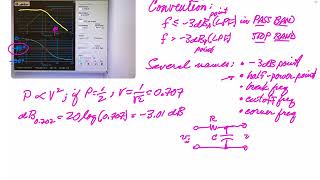 Convention:
point
f ≤ -3dB (LPF) in PASS BAND
f > -3dB (LPF) " STOP BAND
point
Several names: • -3dB point
• half-power point
• break freq
• cutoff freq
• corner freq
P ∝ V²; if P=1/2, V=1/√2=0.707
dB0.702=20log(0.707)=-3.01 dB
R
C